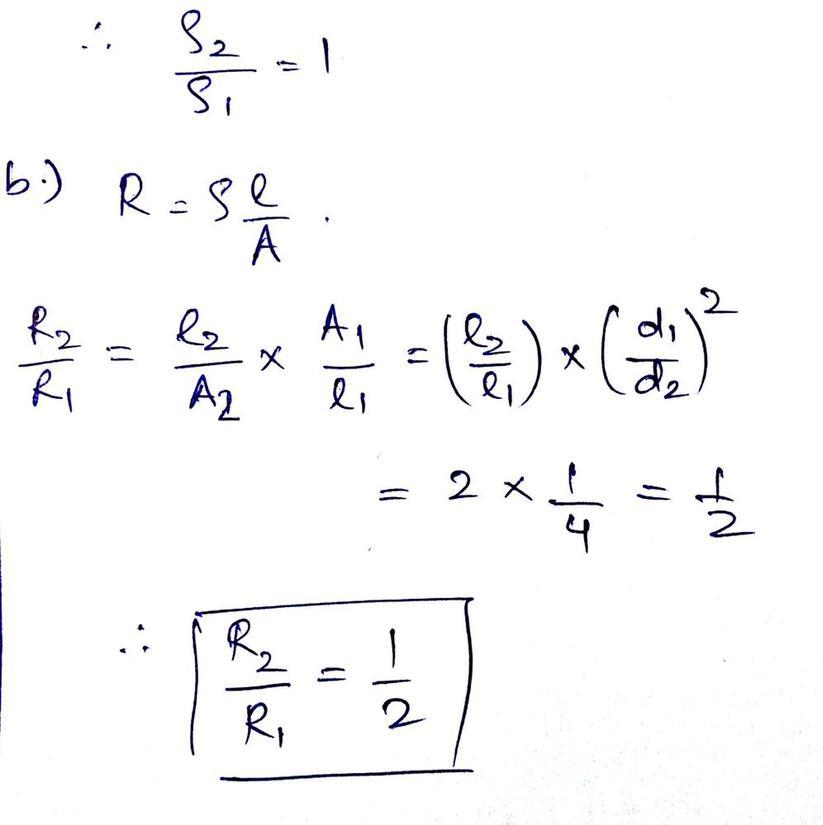 ∴ ρ₂/ρ₁ = 1
b.) R = ρ l/A .
R₂/R₁ = l₂/A₂ × A₁/l₁ = (l₂/l₁) × (d₁/d₂)²
= 2 × 1/4 = 1/2
∴ R₂/R₁ = 1/2